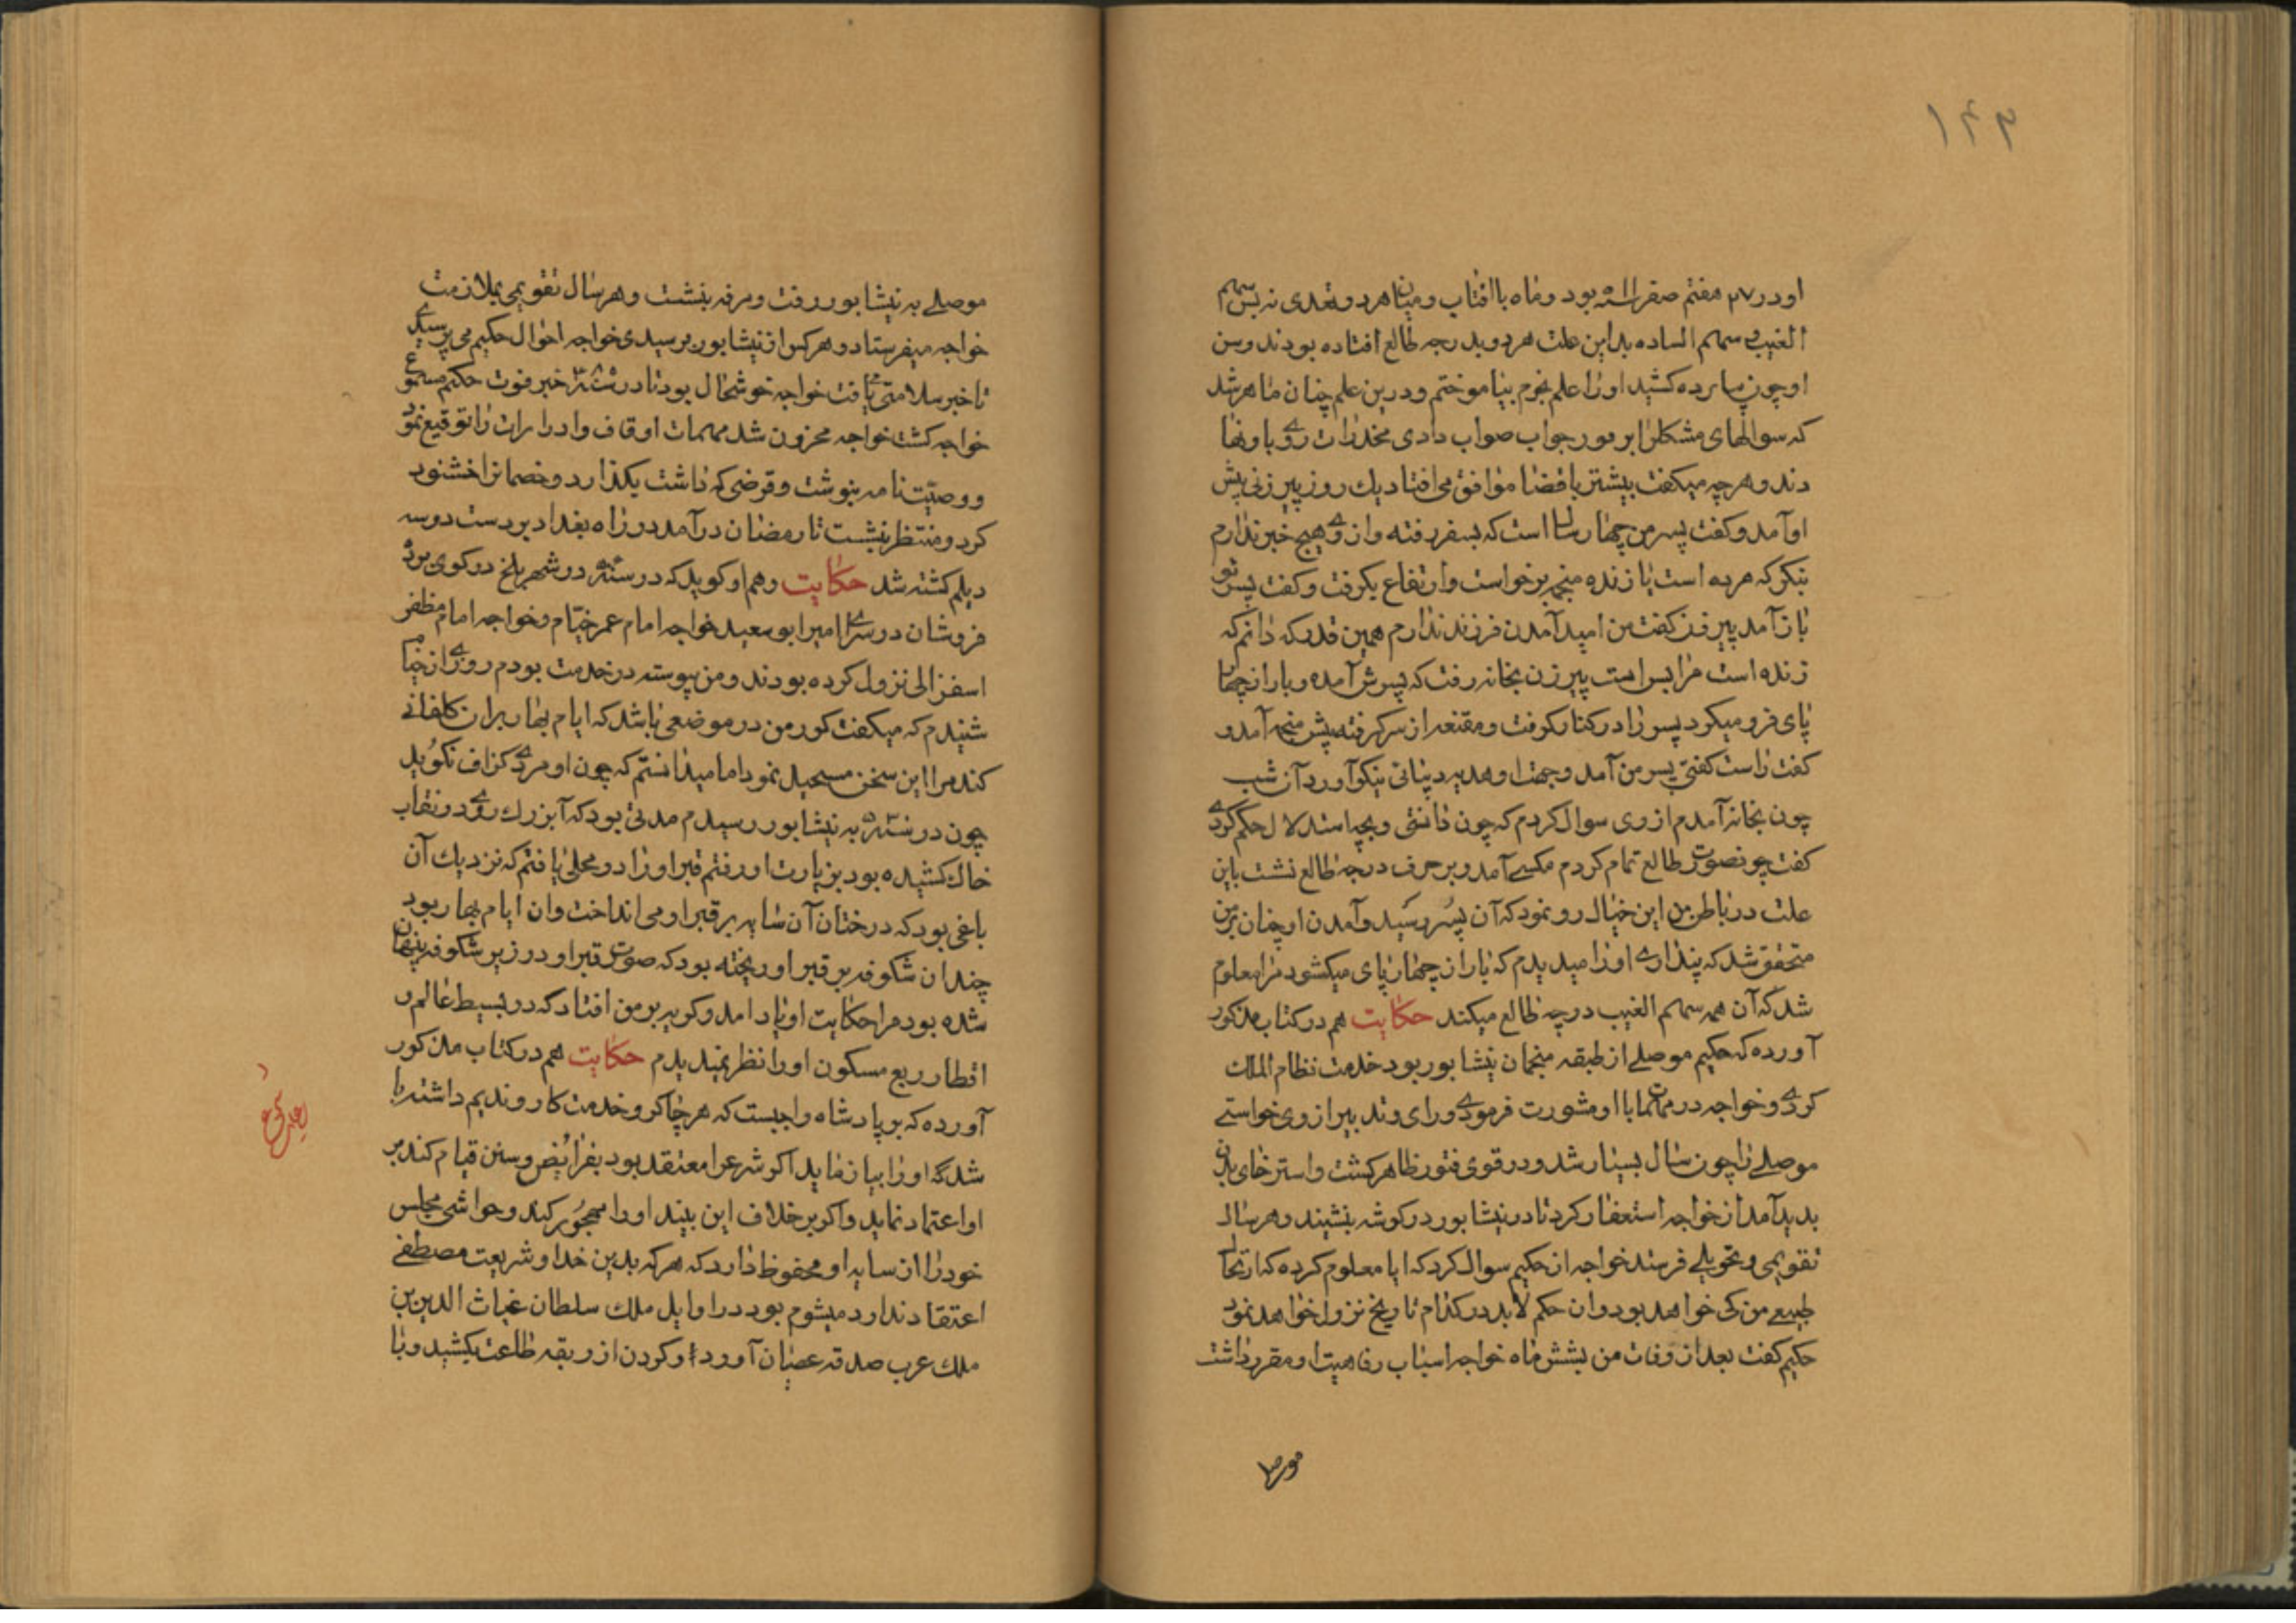 ۱۴۳
او در ۲۷ هفتم صفر سنه بود و ماه با افتاب و میان هر دو بعدی نه پس سهم
الغیب و سهم الساده بداین علت هر دو بدرجه طالع افتاده بودند و سن
او چون پانزده کشید او را علم نجوم بیاموختم و درین علم چنان ماهر شد
که سوالهای مشکل را بر فور جواب صواب دادی مخدرات روی باو نها
دند و هر چه میکفت بیشتر با قضا موافق می افتاد یک روز پیر زنی پیش
او آمد و کفت پسر من چهار سال است که بسفر رفته و از وی هیچ خبر ندارم
بنکر که مرده است یا زنده منجمه برخواست و ارتفاع بکرفت و کفت پسر تو
باز آمد پیر زن کفت من امید آمدن فرزند ندارم همین قدر که دانم که
زنده است مرا بس است پیر زن بخانه رفت که پسرش آمده و بار از چهار
پای فرو میکرد پسر را در کنار کرفت و مقنعه از سر کرفته پیش منجمه آمد و
کفت راست کفتی پسر من آمد و جهت او هدیه دیناتی نیکو آورد آن شب
چون بخانه آمدم از وی سوال کردم که چون دانستی و بچه استدلال حکم کردی
کفت چو نصورت طالع تمام کردم مکسی آمد و بر حرف درجه طالع نشست باین
علت در باطن من این خیال رو نمود که آن پسر رسید و آمدن او چنان بر من
متحقق شد که پنداری او را میدیدم که بار از چهار پای میکشود مرا معلوم
شد که آن همه سهم الغیب درجه طالع میکند حکایت هم در کتاب مذکور
آورده که حکیم موصلی از طبقه منجمان نیشابور بود خدمت نظام الملک
کردی و خواجه در مهمات با او مشورت فرمودی و رای و تدبیر از وی خواستی
موصلی را چون سال بسیار شد و در قوی فتور ظاهر کشت و استرخای بدن
بدید آمد از خواجه استعفار کرد تا در نیشابور در کوشه بنشیند و هر سال
تقویمی و تحویلی فرستد خواجه از حکیم سوال کرد که ایا معلوم کرده که ارتحال
طبیعی من کی خواهد بود و ان حکم لابد در کدام تاریخ نزول خواهد نمود
حکیم کفت بعد از وفات من بشش ماه خواجه اسباب رفاهیت او مقرر داشت
موصلی به نیشابور رفت و مرفه بنشست و هر سال تقویمی بملازمت
خواجه میفرستاد و هر کس از نیشابور برسیدی خواجه احوال حکیم می پرسیدی
تا خبر سلامتی می یافت خواجه خوشحال بود تا در سنه خبر فوت حکیم مسموع
خواجه کشت خواجه محزون شد مهمات اوقاف و ادرارات را توقیع نمود
و وصیت نامه بنوشت و قرضی که داشت بکذارد و خصمانرا خشنود
کرد و منتظر نشست تا رمضان در آمد در راه بغداد بر دست دو سه
دیلم کشته شد حکایت و هم او کوید که در سنه در شهر بلخ در کوی برده
فروشان در سرای امیر ابو سعید خواجه امام عمر خیام و خواجه امام مظفر
اسفزالی نزول کرده بودند و من پیوسته در خدمت بودم روزی از خیام
شنیدم که میکفت کور من در موضعی باشد که ایام بهار بران کلفشانی
کند مرا این سخن مستحیل نمود اما میدانستم که چون او مردی کزاف نکوید
چون در سنه به نیشابور رسیدم مدتی بود که آن بزرک روی در نقاب
خاک کشیده بود بزیارت او رفتم قبر او را در محلی یافتم که نزدیک آن
باغی بود که درختان آن سایه بر قبر او می انداخت و ان ایام بهار بود
چندان شکوفه بر قبر او ریخته بود که صورت قبر او در زیر شکوفه پنهان
شده بود مرا حکایت او یاد امد و کریه بر من افتاد که در بسیط عالم و
اقطار ربع مسکون او را نظر نمیدیدم حکایت هم در کتاب مذکور
آورده که بر پادشاه واجبست که هر چاکر و خدمت کار و ندیم داشته باشد
شد که او را بیازماید اکر شرع را معتقد بود بفرائیض و سنن قیام کند بر
او اعتماد نماید و اکر بر خلاف این بیند او را مهجور کند و حواشی مجلس
خود را از سایه او محفوظ دارد که هر که بدین خدا و شریعت مصطفی
اعتقاد ندارد میشوم بود در اوایل ملک سلطان غیاث الدین بن
ملک عرب صدقه عصیان آورد و کردن از ربقه طاعت بکشید و با